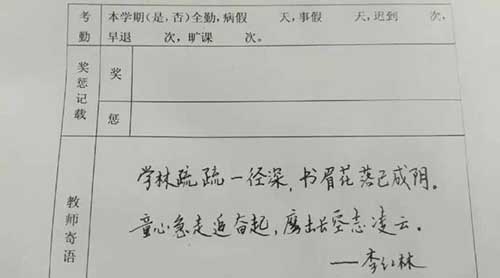 考勤 本学期(是,否)全勤,病假 天,事假 天,迟到 次,
早退 次,旷课 次。
奖惩记载 奖
惩
教师寄语
学林疏疏一径深,书眉花落已成阴。
童心急走追奋起,鹰击长空志凌云。
——李红林